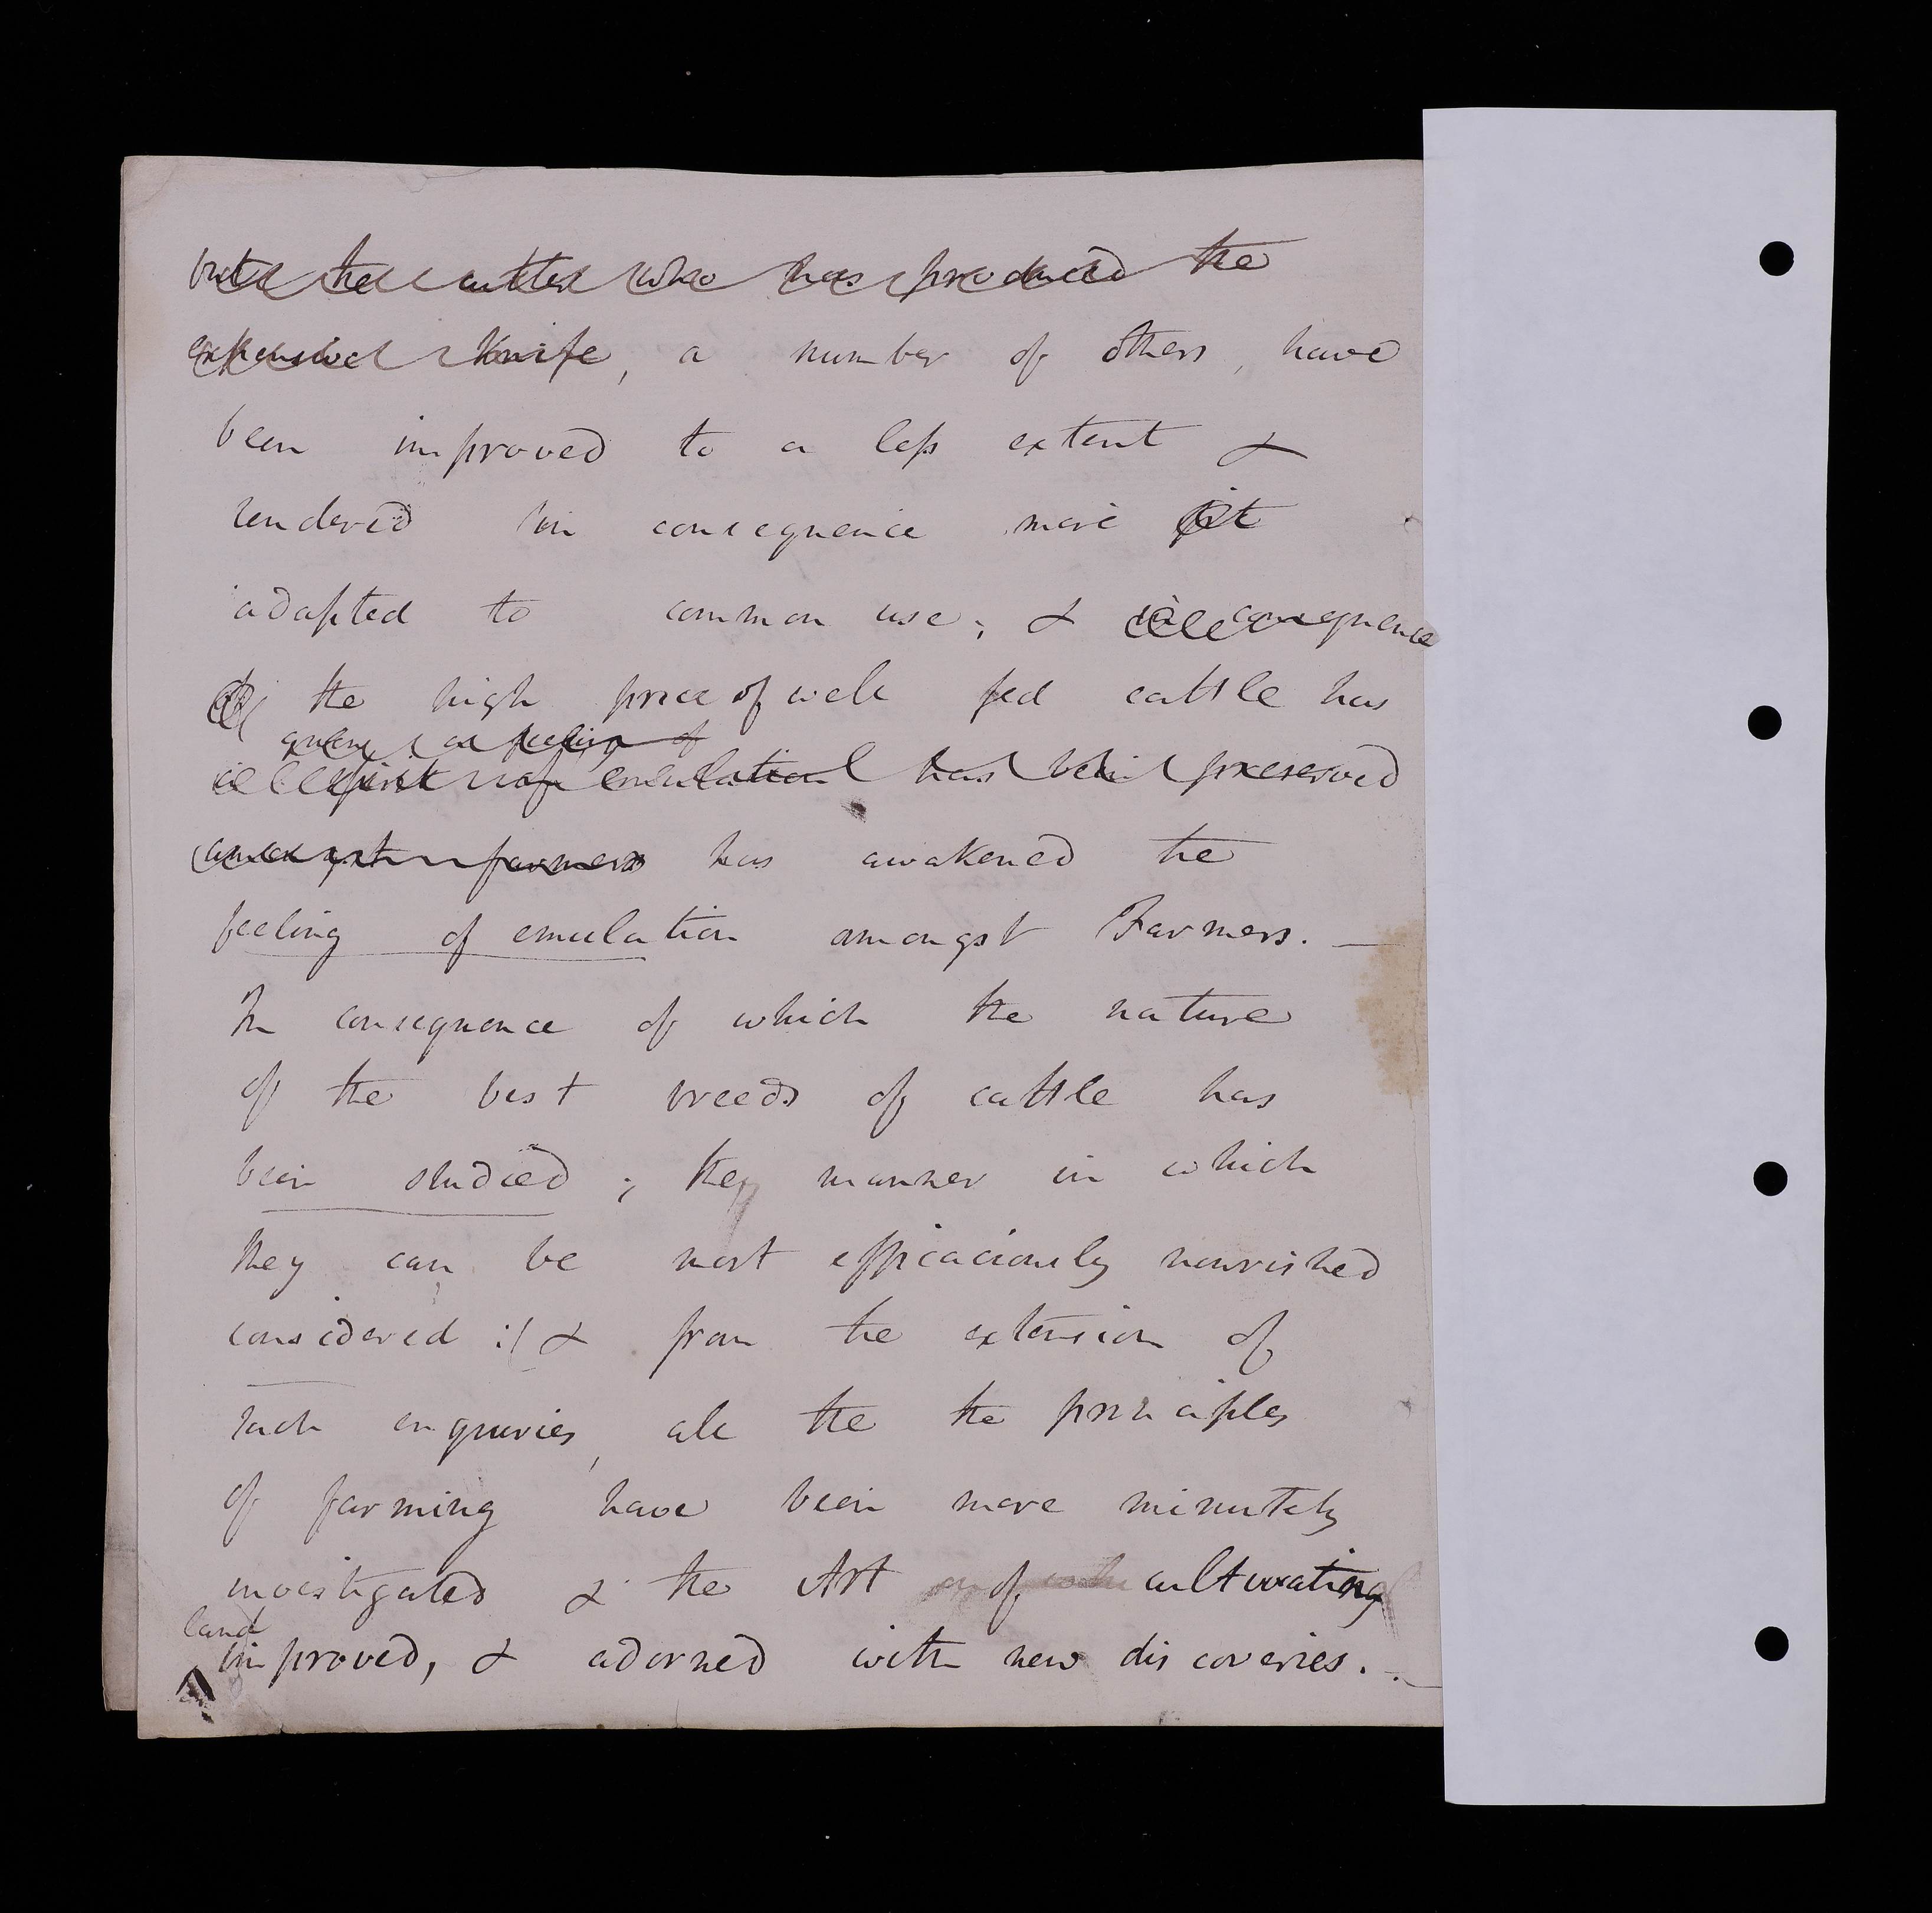 but the cutler who has produced the
expensive Knife, a number of others, have
been improved to a less extent &
rendered in consequence more fit
adapted to common use; & in consequence
of the high price of well fed cattle has
a feeling of
spirit of emulation has been preserved
amongst farmers has awakened the
feeling of emulation amongst Farmers. —
In consequence of which the nature
of the best breeds of cattle has
been studied; the manner in which
they can be most efficaciously nourished
considered :/ & from the extension of
such enquiries, all the the principles
of farming have been more minutely
investigated & the Art of cultivating
land
improved, & adorned with new discoveries. . —